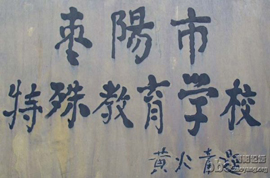 枣陽市
特殊教育学校
黄火青题